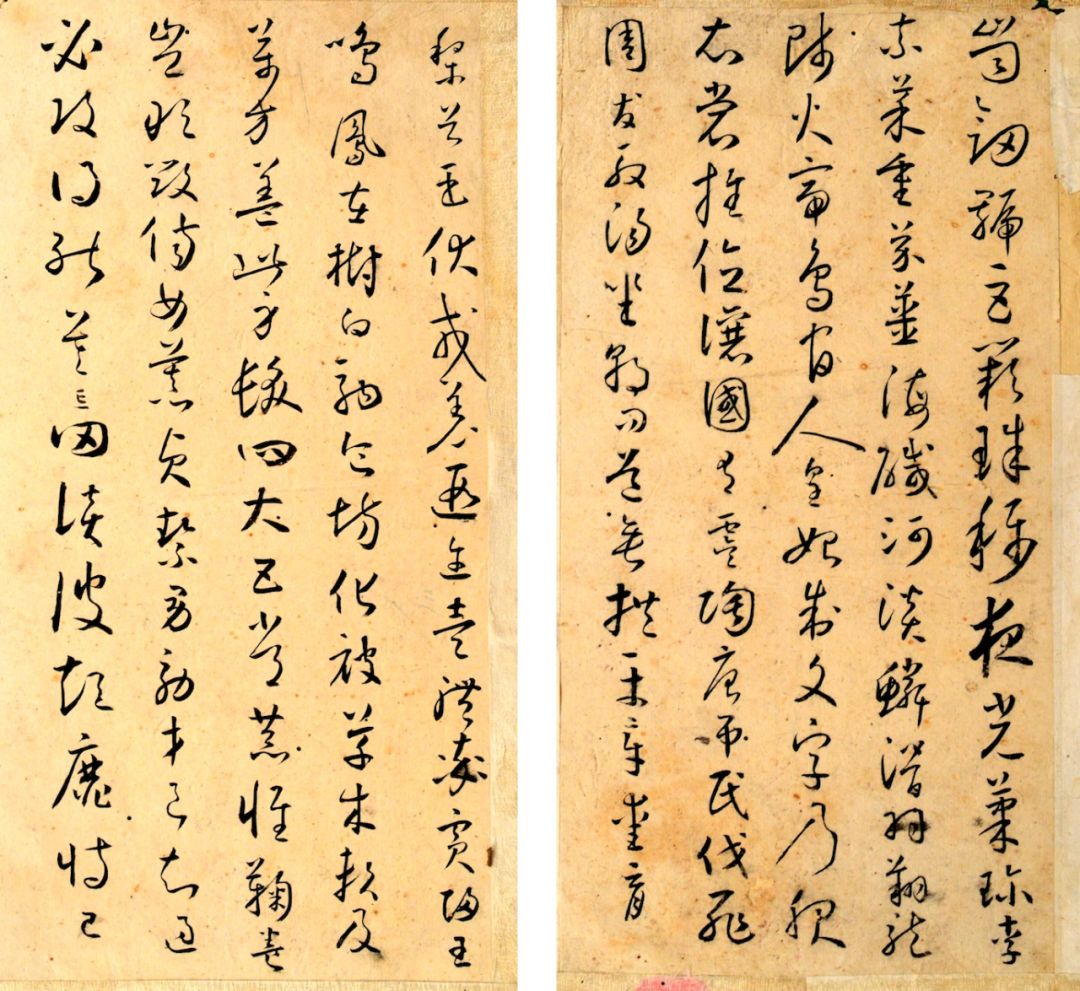 崗劍號巨闕珠稱夜光菓珍李
柰菜重芥薑海鹹河淡鱗潛羽翔龍
師火帝鳥官人皇始制文字乃服
衣裳推位讓國有虞陶唐弔民伐罪
周發殷湯坐朝問道垂拱平章愛育
黎首臣伏戎羌遐邇壹體率賓歸王
鳴鳳在樹白駒食場化被草木賴及
萬方蓋此身髮四大五常恭惟鞠養
豈敢毀傷女慕貞絜男效才良知過
必改得能莫忘罔談彼短靡恃己